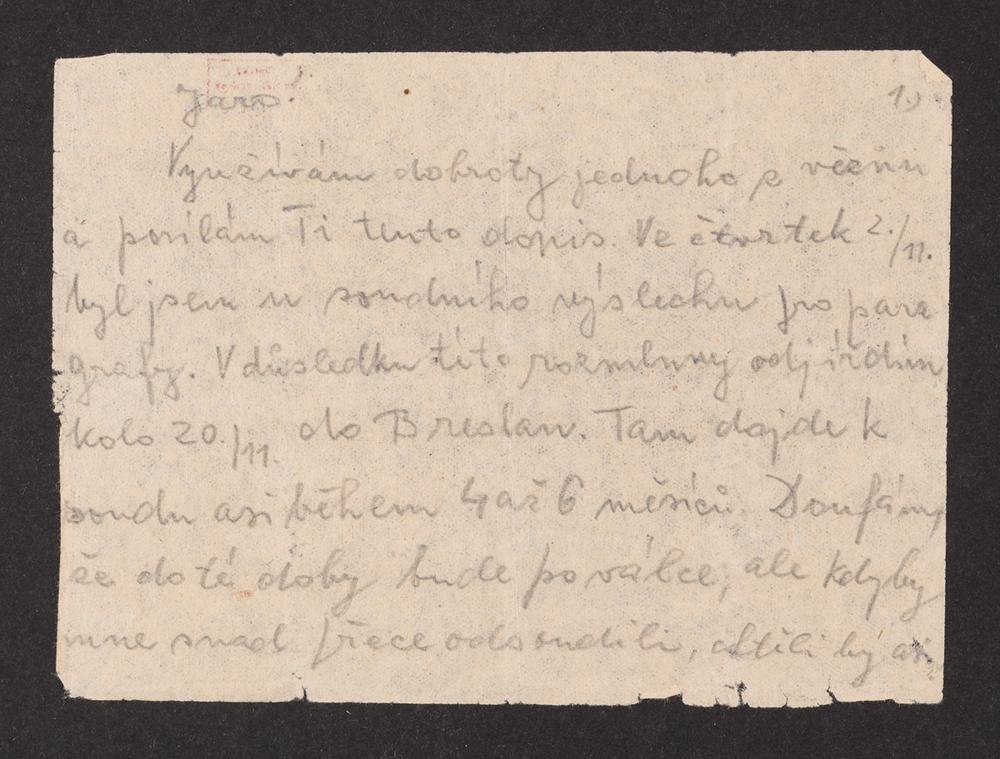 Jaro! 1.)
Využívám dobroty jednoho z vězňu
a posílám Ti tento dopis. Ve čtvrtek 2./11.
byl jsem u soudního výslechu pro para
grafy. V důsledku této rozmluvy odjíždím
kolo 20./11. do Breslau. Tam dojde k
soudu asi během 4 až 6 měsíců. Doufám,
že do té doby bude po válce, ale kdyby
mne snad přece odsoudili, chtěli by asi